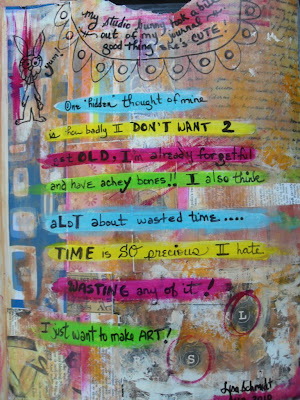 my studio bunny took a bite
out of my journal
good thing she's CUTE!
yum!!
One "hidden" thought of mine
is how badly I DON'T WANT 2
get OLD, I'm already forgetful
and have achey bones!! I also think
aLOT about wasted time....
TIME is SO precious I hate
WASTING any of it!
I just want to make ART!
L
S
Lisa Schmidt
2010